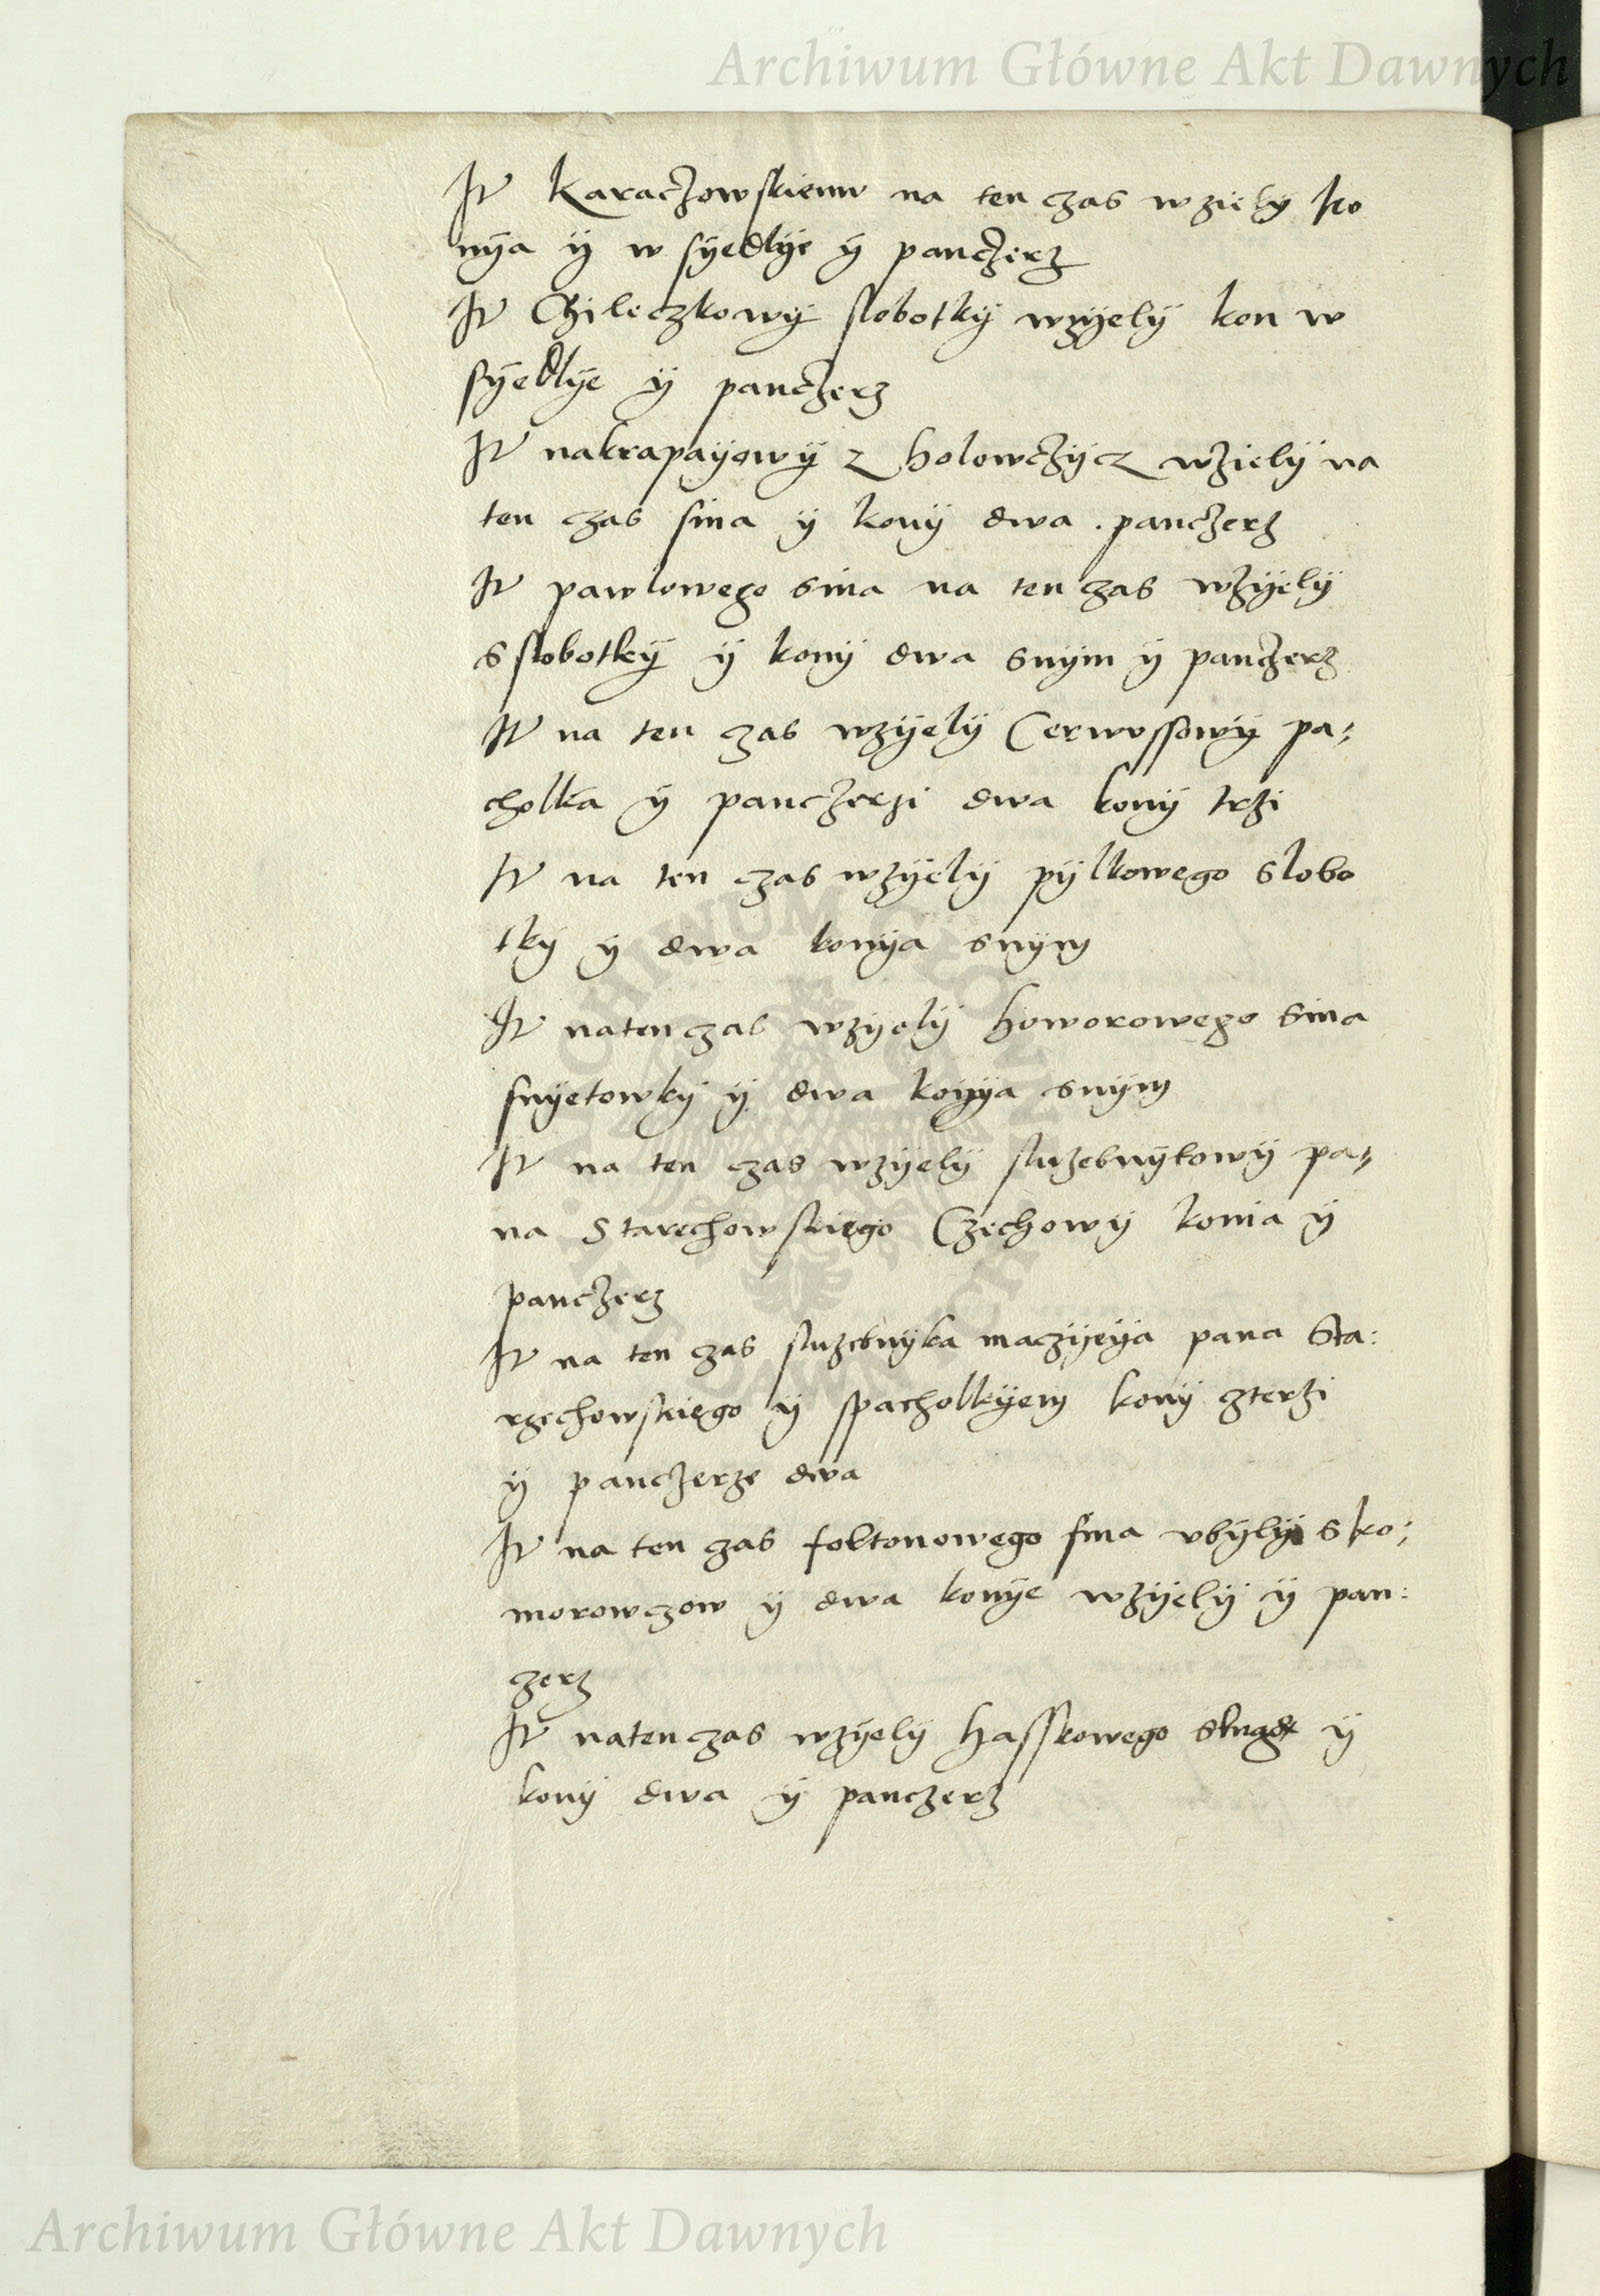 Archiwum Główne Akt Dawnych
It Karaczowskiemu na ten czas wziely ko
nÿa ÿ w sÿedlÿe ÿ panczerz
It Chileczkowÿ slobotkÿ wzÿelÿ kon w
sÿedlÿe ÿ panczerz
It nakrapaÿowÿ z holowczÿcz wzielÿ na
ten czas sina ÿ konÿ dwa panczerz
It pawlowego sina na ten czas wzÿelÿ
s slobotkÿ ÿ konÿ dwa snÿm ÿ panczerz
It na ten czas wzÿelÿ Cerwussowÿ pa=
cholka ÿ panczerzi dwa konÿ trzi
It na ten czas wzÿelÿ pÿlkowego slobo
tkÿ ÿ dwa konÿa snÿm
It natenczas wzÿelÿ howorowego sina
snÿetowkÿ ÿ dwa konÿa snÿm
It na ten czas wzÿelÿ sluzebnÿkowÿ pa=
na Starechowskiego Czechowÿ konia ÿ
panczerz
It na ten czas sluzebnÿka maczÿeÿa pana Sta:
rzechowskiego ÿ spacholkÿem konÿ czterzi
ÿ panczerze dwa
It na ten czas foltonowego sina vbÿlÿ s ko:
morowczow ÿ dwa konÿe wzÿelÿ ÿ pan:
czerz
It natenczas wzÿelÿ hasskowego ÿ
konÿ dwa ÿ panczerz
Archiwum Główne Akt Dawnych